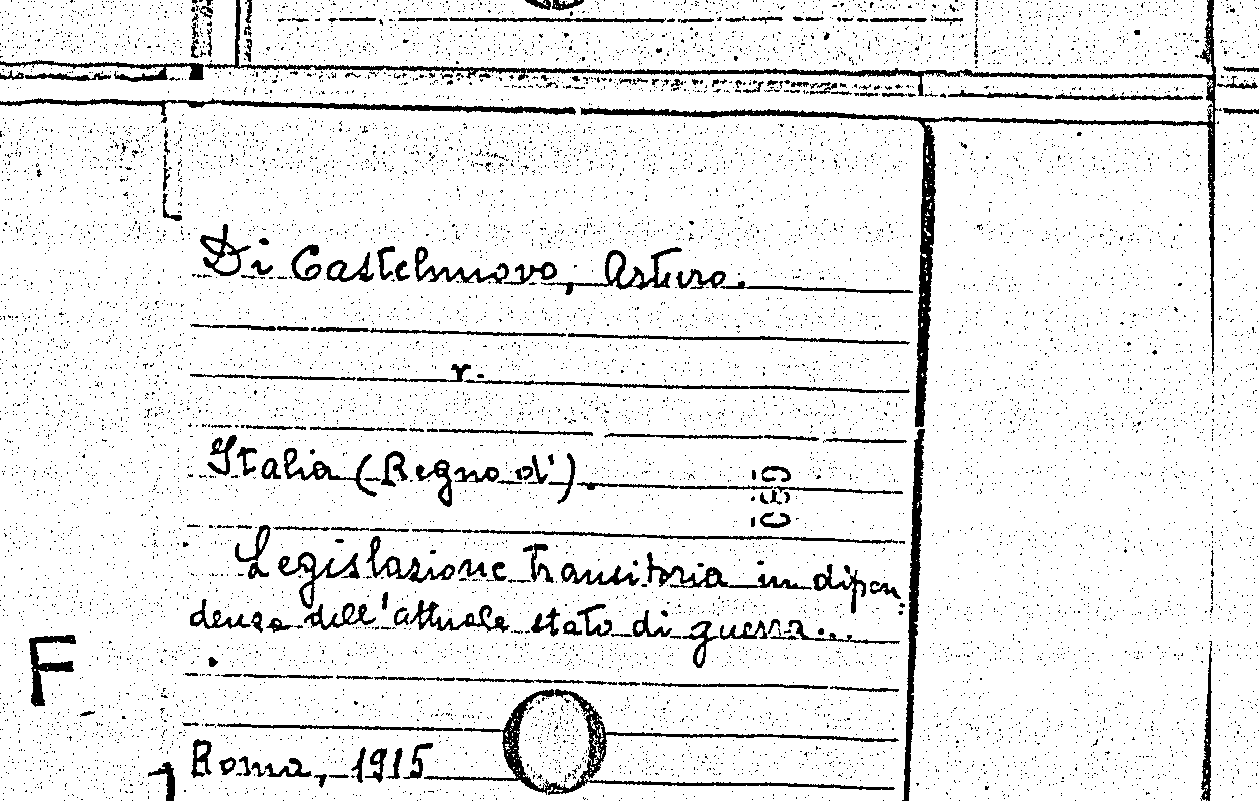 Di Castelnuovo, Arturo.
v.
Italia (Regno d').
Legislazione transitoria in dipen:
denza dell'attuale stato di guerra...
F
Roma, 1915